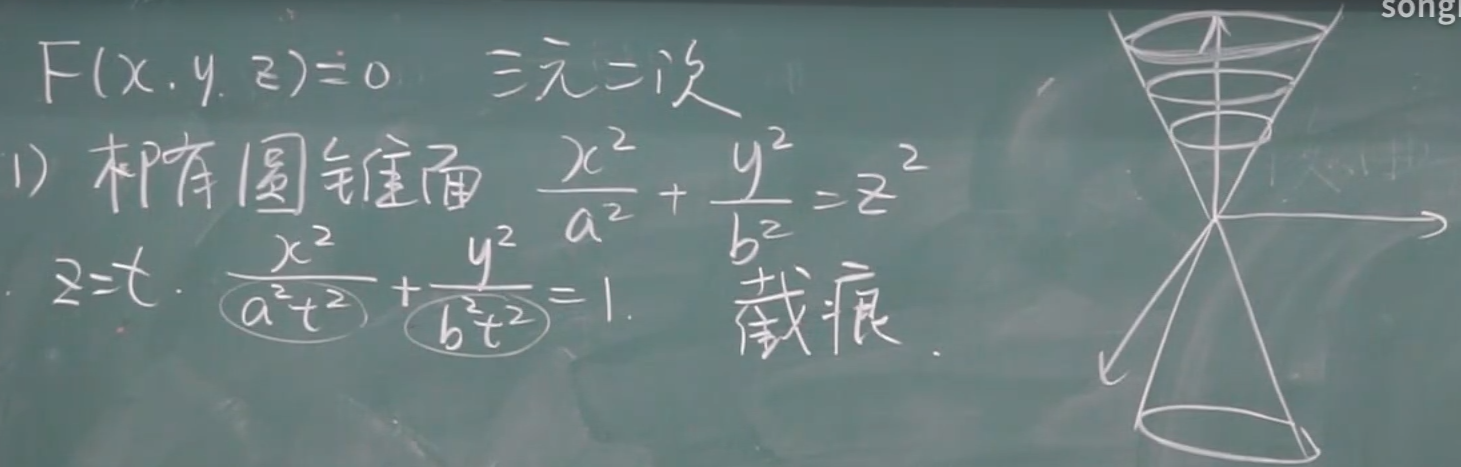 F(x.y.z)=0 三元二次
1) 椭圆锥面 x²/a² + y²/b² = z²
z=t. x²/a²t² + y²/b²t² = 1. 截痕.